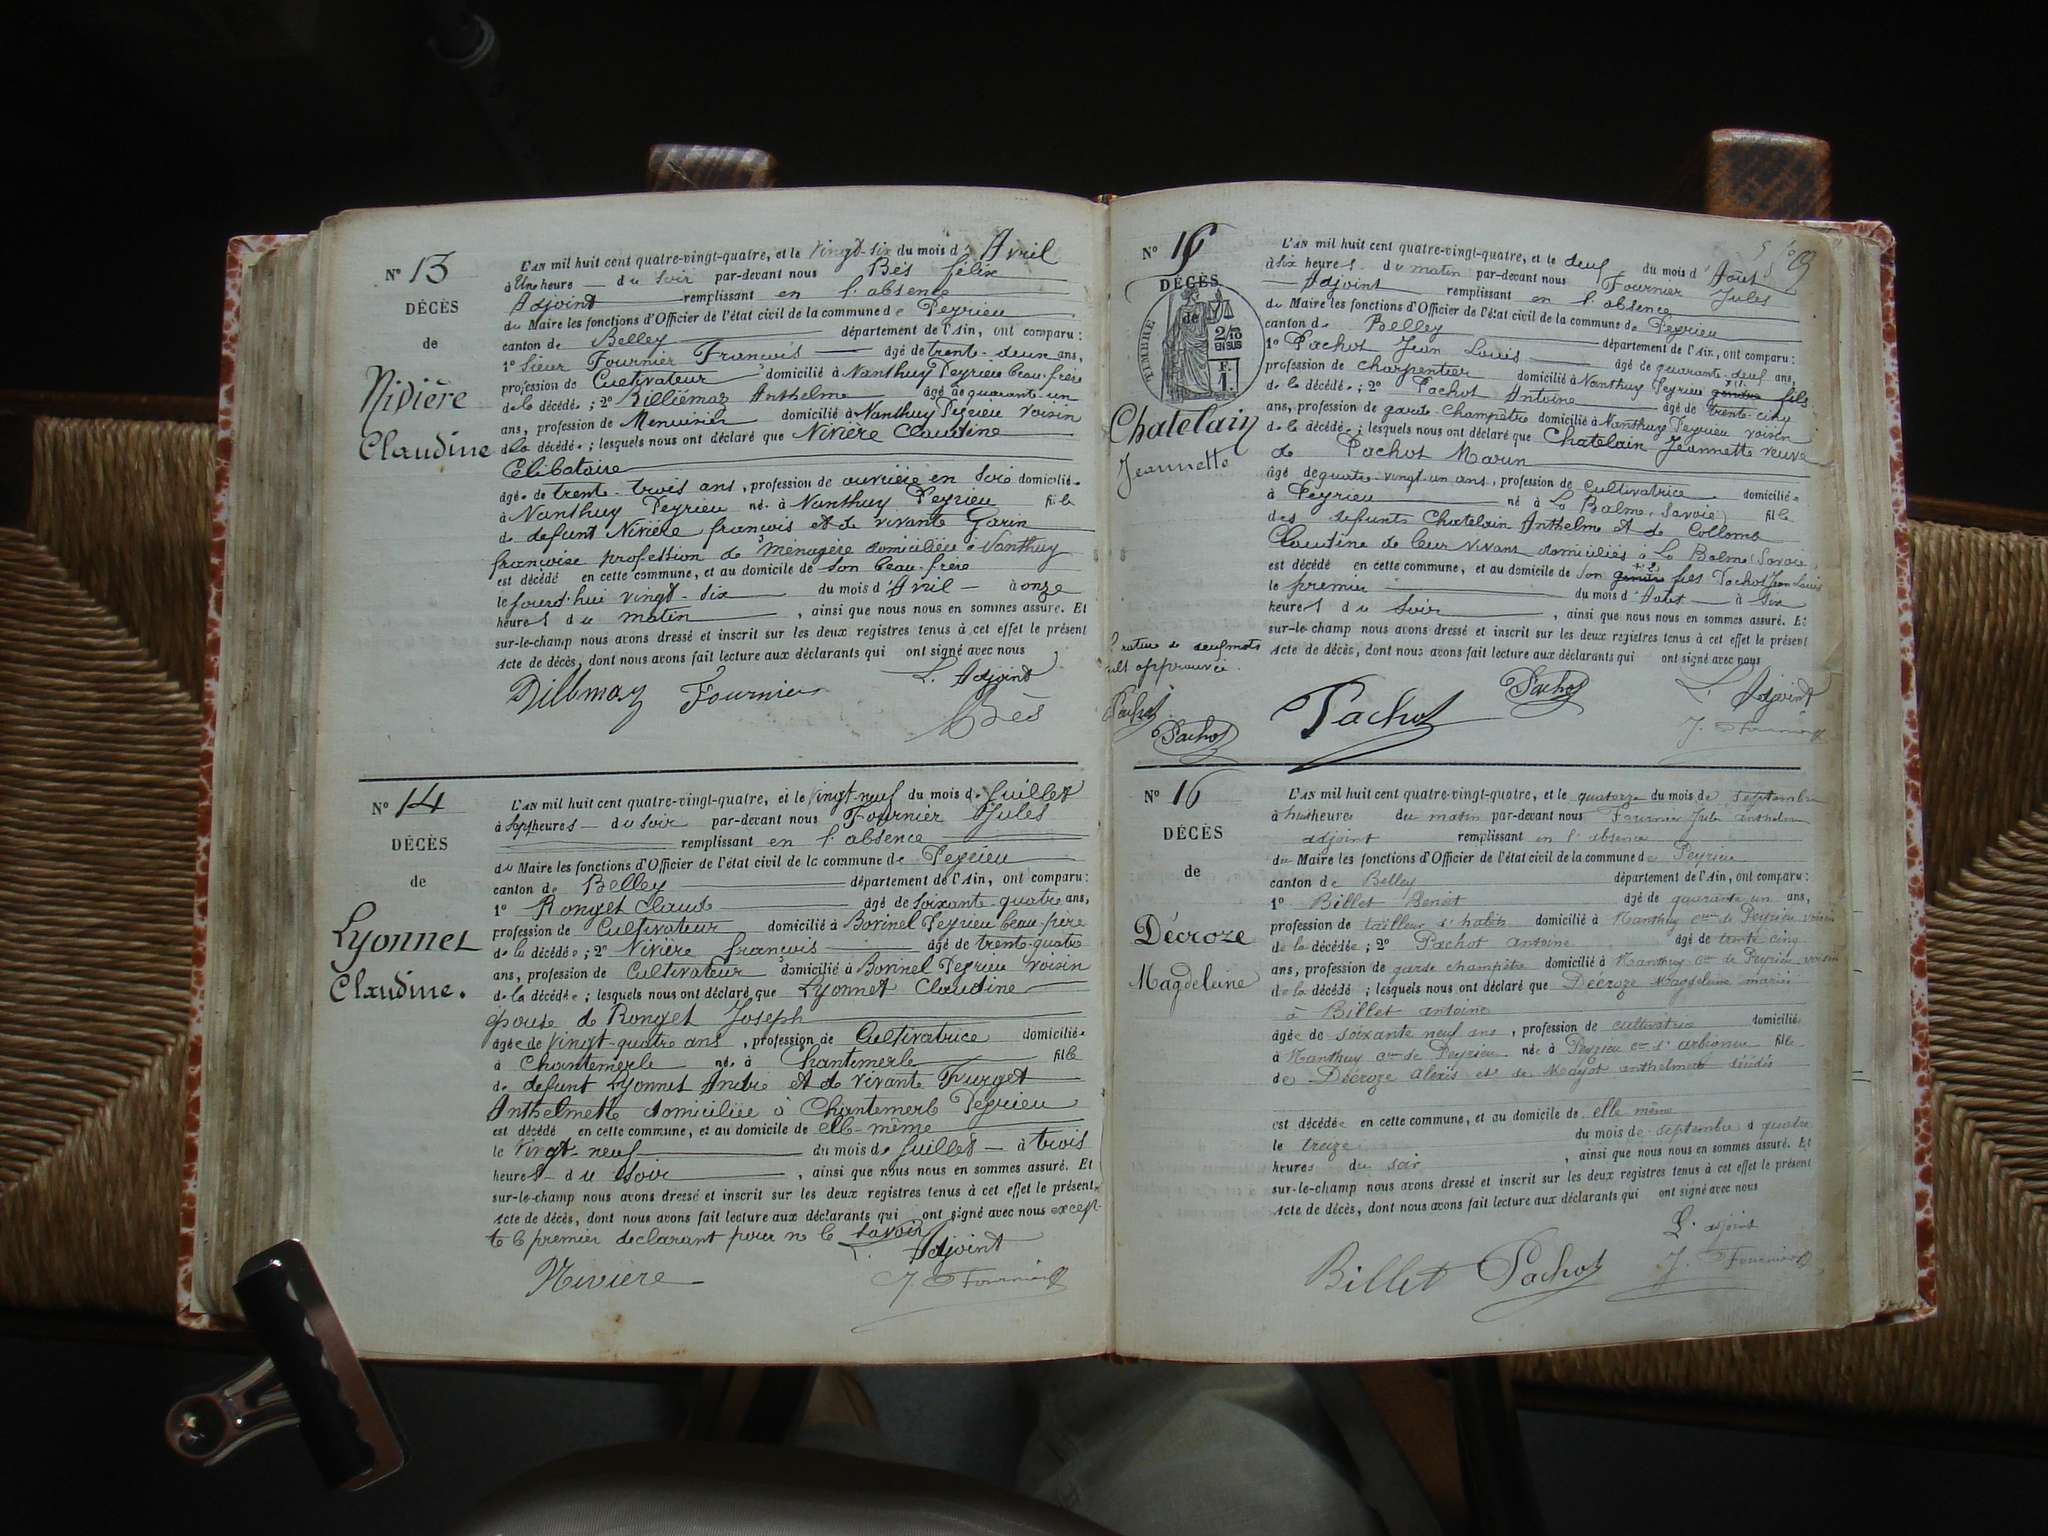 N° 13
DÉCÈS
de
Nivière
Claudine
L'AN mil huit cent quatre-vingt-quatre, et le vingt-six du mois d'Avril
à Une heure du soir par-devant nous Bés félix
Adjoint remplissant en l'absence
du Maire les fonctions d'Officier de l'état civil de la commune de Peyrieu
canton de Belley département de l'Ain, ont comparu :
1° Sieur Fournier François âgé de trente-deux ans,
profession de Cultivateur domicilié à Nanthuy Peyrieu beau-frère
de la décédée ; 2° Billiémaz Anthelme âgé de quarante-un
ans, profession de Menuisier domicilié à Nanthuy Peyrieu voisin
de la décédée ; lesquels nous ont déclaré que Nivière Claudine
Célibataire
âgée de trente-trois ans, profession de ouvrière en soie domiciliée
à Nanthuy Peyrieu née à Nanthuy Peyrieu fille
de defunt Nivière françois et de vivante Garin
françoise profession de Ménagère domiciliée à Nanthuy
est décédé en cette commune, et au domicile de son beau-frère
le jourd'hui vingt-six du mois d'Avril à onze
heures du matin, ainsi que nous nous en sommes assuré. Et
sur-le-champ nous avons dressé et inscrit sur les deux registres tenus à cet effet le présent
Acte de décès, dont nous avons fait lecture aux déclarants qui ont signé avec nous
L'Adjoint
Fournier
Bés
N° 14
DÉCÈS
de
Lyonnet
Claudine.
L'AN mil huit cent quatre-vingt-quatre, et le vingt-neuf du mois de Juillet
à sept heures du soir par-devant nous Fournier Jules
remplissant en l'absence
du Maire les fonctions d'Officier de l'état civil de la commune de Peyrieu
canton de Belley département de l'Ain, ont comparu :
1° Ronget Claude âgé de soixante-quatre ans,
profession de Cultivateur domicilié à Bovinel Peyrieu beau-père
de la décédée ; 2° Nivière françois âgé de trente-quatre
ans, profession de Cultivateur domicilié à Bovinel Peyrieu voisin
de la décédée ; lesquels nous ont déclaré que Lyonnet Claudine
épouse de Ronget Joseph
âgée de vingt-quatre ans, profession de Cultivatrice domiciliée
à Chantemerle née à Chantemerle fille
de defunt Lyonnet André et de vivante Furget
Anthelmette domiciliée à Chantemerle Peyrieu
est décédé en cette commune, et au domicile de elle-même
le vingt-neuf du mois de Juillet à trois
heures du soir, ainsi que nous nous en sommes assuré. Et
sur-le-champ nous avons dressé et inscrit sur les deux registres tenus à cet effet le présent
Acte de décès, dont nous avons fait lecture aux déclarants qui ont signé avec nous except
té le premier déclarant pour ne le savoir
L'Adjoint
Nivière
J. Fournier
N° 15
DÉCÈS
de
TIMBRE
2/10
EN SUS
F.
1.
Chatelain
Jeannette
L'AN mil huit cent quatre-vingt-quatre, et le deux du mois d'Août
à six heures du matin par-devant nous Fournier Jules
Adjoint remplissant en l'absence
du Maire les fonctions d'Officier de l'état civil de la commune de Peyrieu
canton de Belley département de l'Ain, ont comparu :
1° Pachot Jean Louis âgé de quarante-deux ans,
profession de charpentier domicilié à Nanthuy Peyrieu gendre fils
de la décédée ; 2° Pachot Antoine âgé de trente-cinq
ans, profession de garde-Champêtre domicilié à Nanthuy Peyrieu voisin
de la décédée ; lesquels nous ont déclaré que Chatelain Jeannette veuve
de Pachot Marin
âgée de quatre-vingt-un ans, profession de Cultivatrice domiciliée
à Peyrieu née à La Balme (Savoie) fille
des defunts Chatelain Anthelme et de Collomb
Claudine de leur vivant domiciliés à La Balme (Savoie)
est décédé en cette commune, et au domicile de son gendre fils Pachot Jean Louis
le premier du mois d'Août à six
heures du soir, ainsi que nous nous en sommes assuré. Et
sur-le-champ nous avons dressé et inscrit sur les deux registres tenus à cet effet le présent
Acte de décès, dont nous avons fait lecture aux déclarants qui ont signé avec nous
rature de deux mots
est approuvée.
Pachot
Pachot
Pachot
Pachot
L'Adjoint
J. Fournier
N° 16
DÉCÈS
de
Décroze
Magdeleine
L'AN mil huit cent quatre-vingt-quatre, et le quatorze du mois de septembre
à huit heures du matin par-devant nous Fournier Jules anthelme
adjoint remplissant en l'absence
du Maire les fonctions d'Officier de l'état civil de la commune de Peyrieu
canton de Belley département de l'Ain, ont comparu :
1° Billet Benoit âgé de quarante un ans,
profession de tailleur d'habits domicilié à Nanthuy Cne de Peyrieu voisin
de la décédée ; 2° Pachot antoine âgé de trente cinq
ans, profession de garde champêtre domicilié à Nanthuy Cne de Peyrieu voisin
de la décédé ; lesquels nous ont déclaré que Décroze Magdeleine mariée
à Billet antoine
âgée de soixante neuf ans, profession de cultivatrice domiciliée
à Nanthuy Cne de Peyrieu née à Peyzieu Cne d'arbignieu fille
de Décroze Alexis et de Mayot anthelmette décédés
est décédée en cette commune, et au domicile de elle même
le treize du mois de septembre à quatre
heures du soir, ainsi que nous nous en sommes assuré. Et
sur-le-champ nous avons dressé et inscrit sur les deux registres tenus à cet effet le présent
Acte de décès, dont nous avons fait lecture aux déclarants qui ont signé avec nous
L'adjoint
Billet Pachot J. Fournier